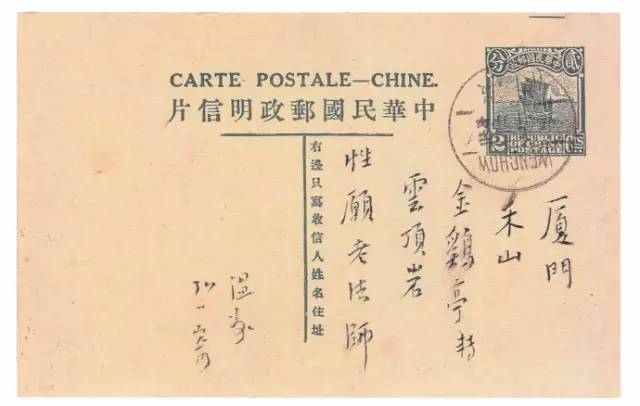 CARTE POSTALE—CHINE.
中華民國郵政明信片
貳分
中華民國郵政
2
REPUBLIC
OF CHINA
POSTAGE
CTS
WENCHOW
廈門
禾山
金鷄亭轉
雲頂岩
性願老法師
右邊只寫收信人姓名住址
溫
弘一